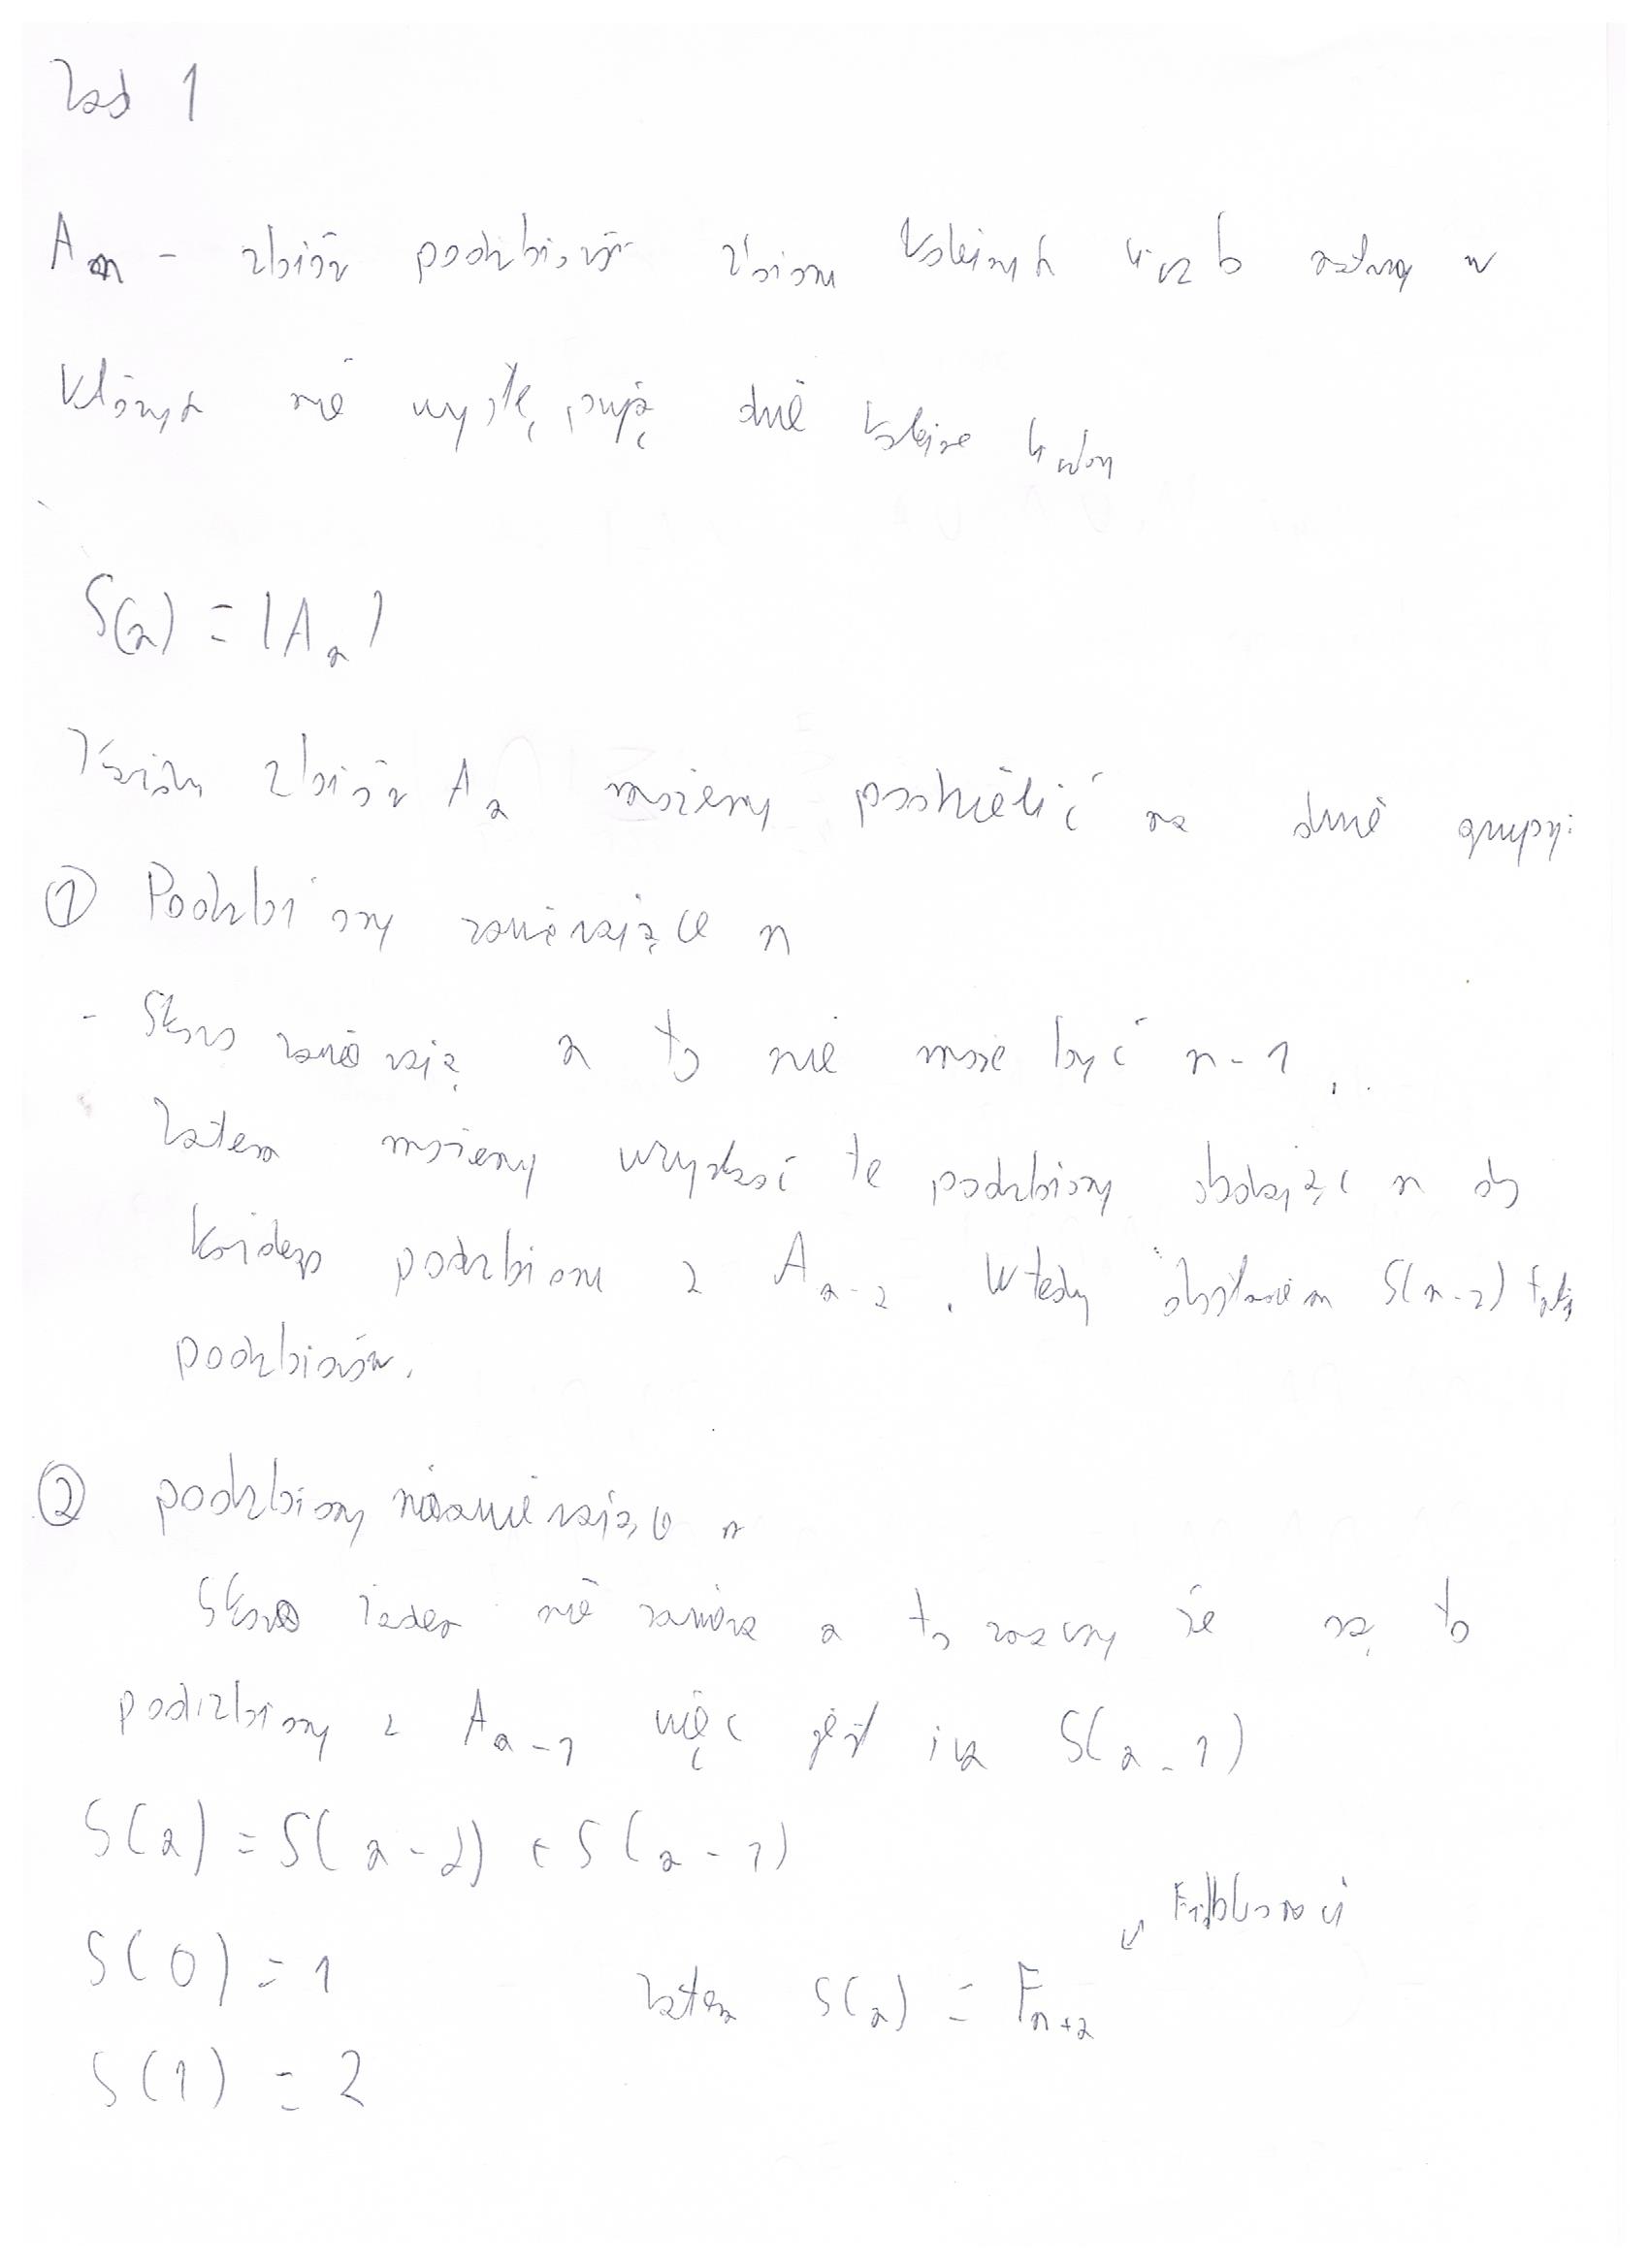 Zad 1
An - zbiór podzbiorów zbioru kolejnych liczb natury w
których nie występują dwie kolejne liczby
S(n) = |An|
Każdy zbiór An możemy podzielić na dwie grupy:
① Podzbiory zawierające n
- Skoro zawierają n to nie może być n-1.
Zatem możemy uzyskać te podzbiory dodając n do
każdego podzbioru z An-2. Wtedy dostaniem S(n-2) taki
podzbiorów.
② podzbiory niezawierające n
Skoro żaden nie zawiera n to znaczy że są to
podzbiory z An-1 więc jest ich S(n-1)
S(n) = S(n-2) + S(n-1)
Fibbonacci
S(0) = 1
zatem S(n) = Fn+2
S(1) = 2